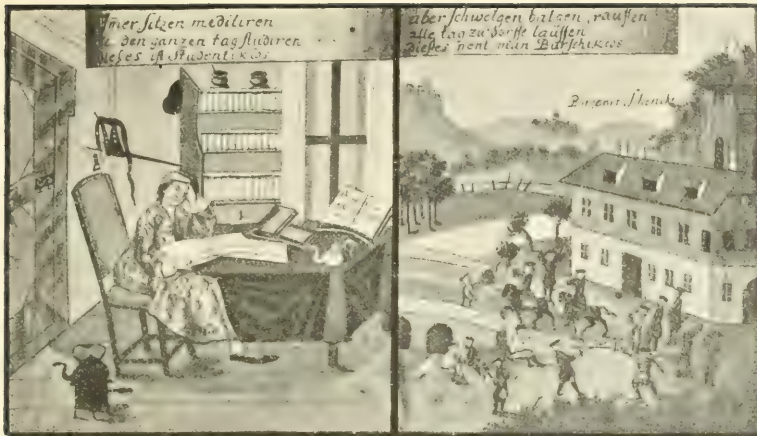 sitzen mediliren
den ganzen tag studiren
dieses ist Studentikos
aber schwelgen balgen, rauffen
alle tag zu dorffe lauffen
dieses nent man Burschikos